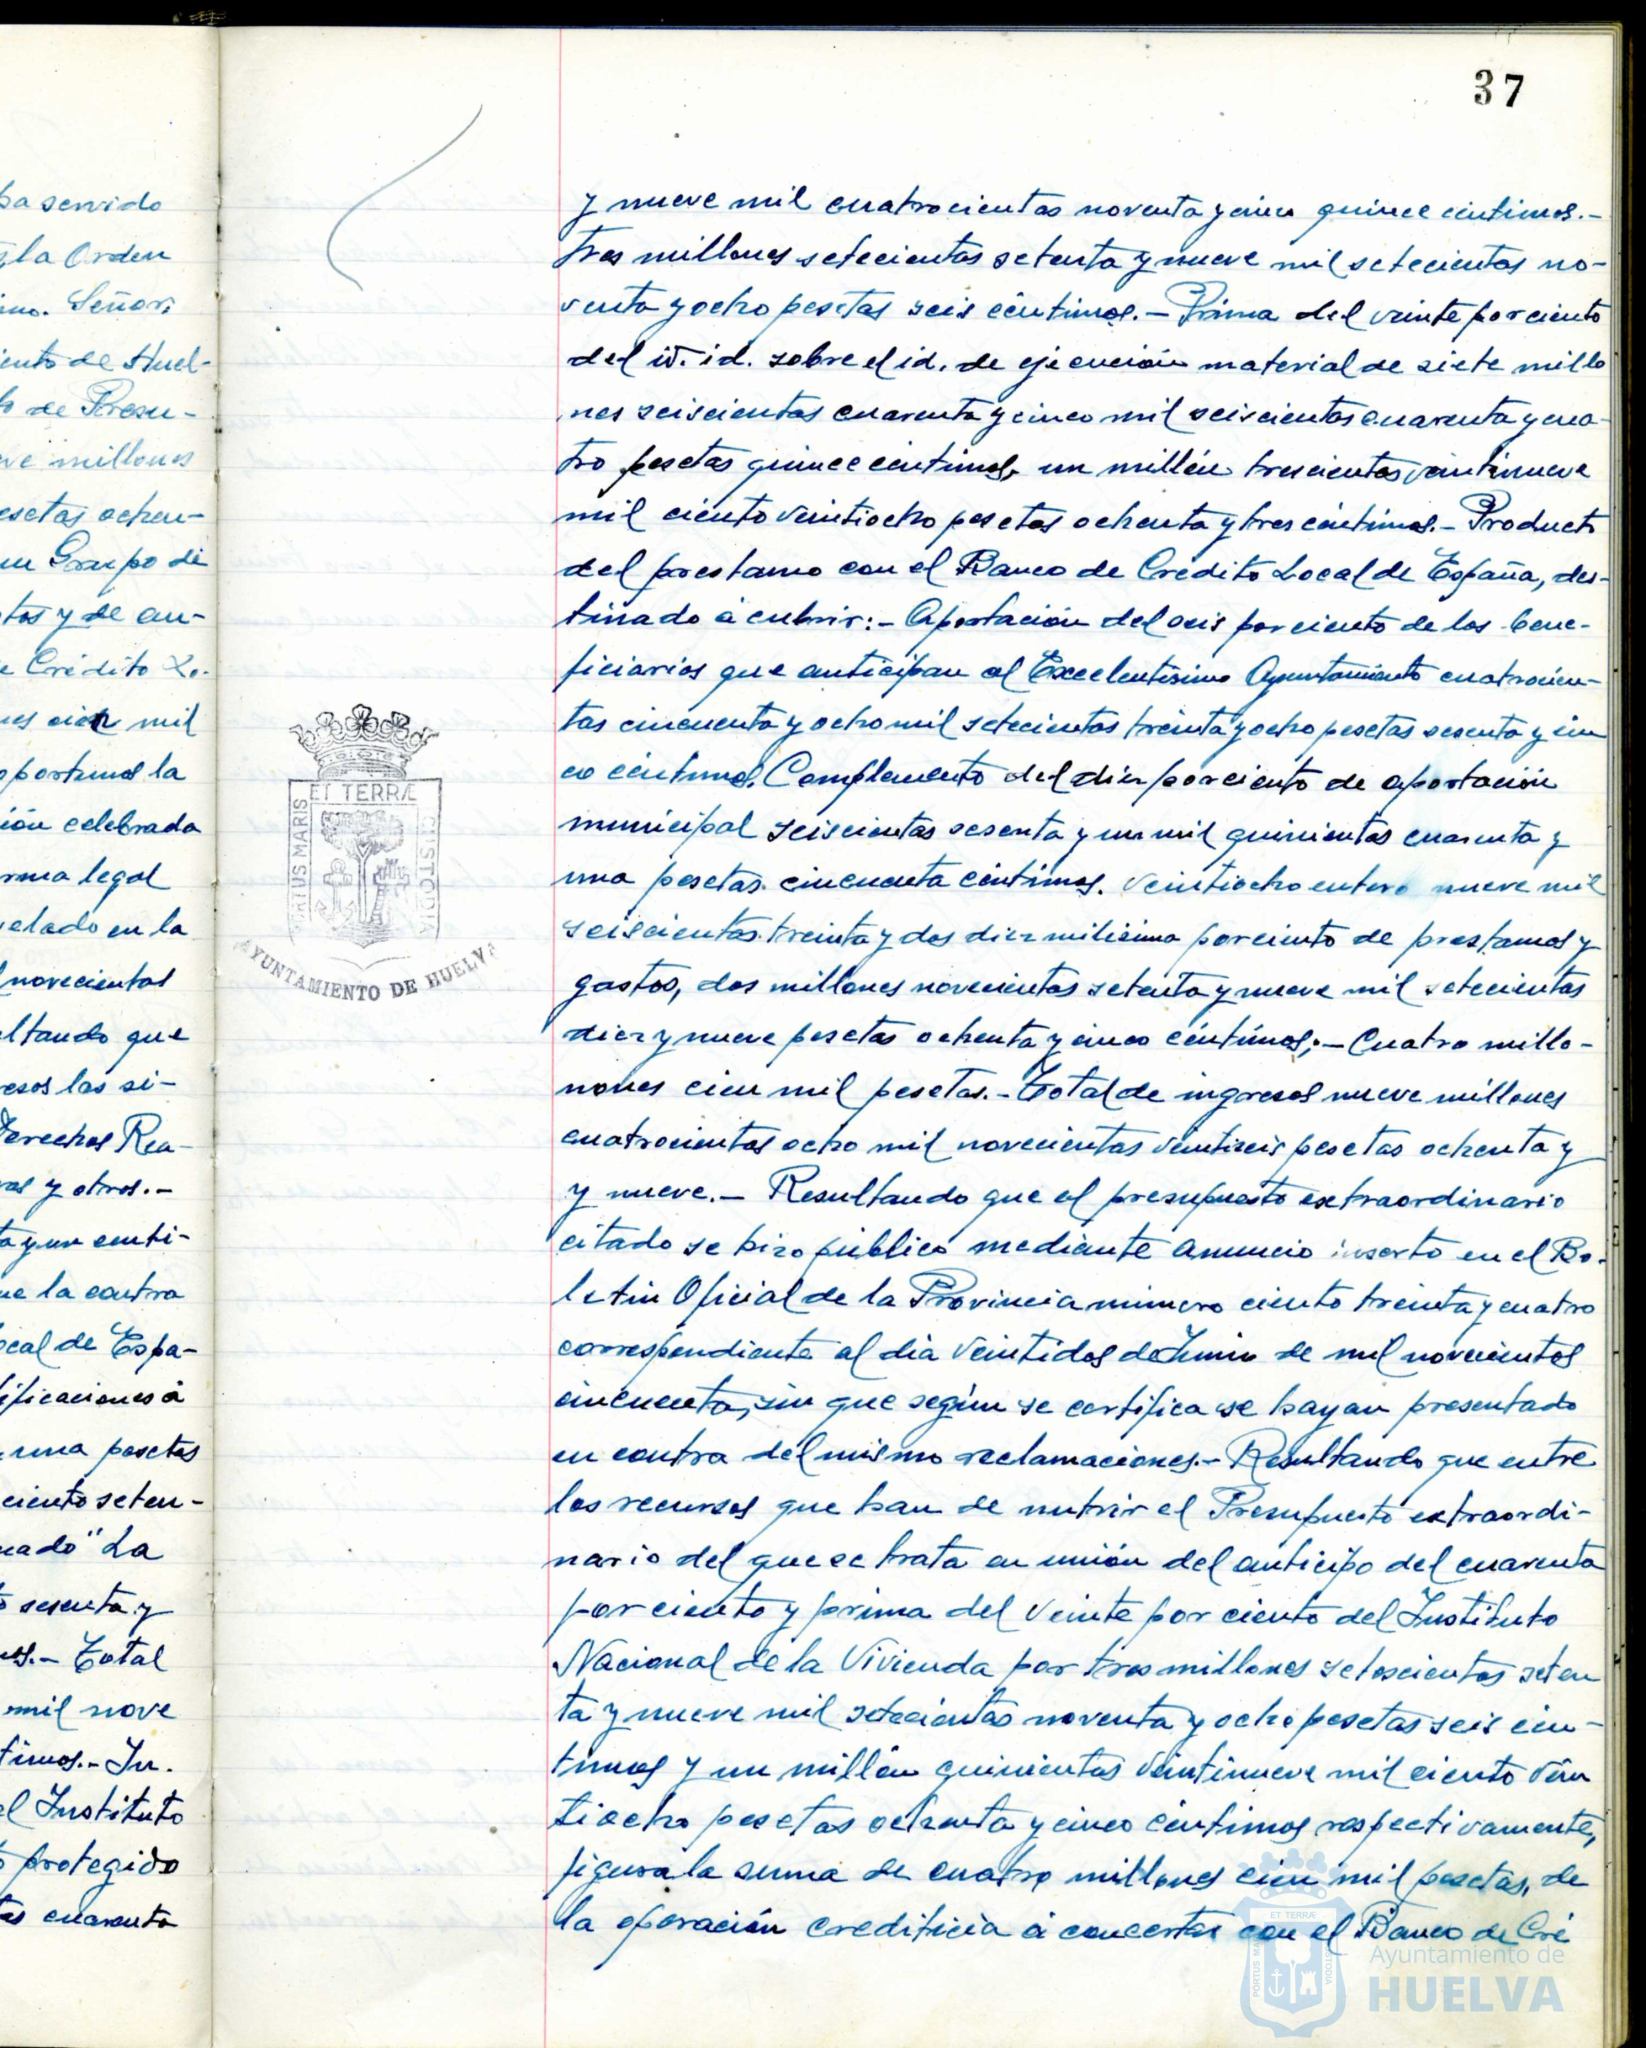 37
ha servido
la Orden
imo. Señor:
iento de Huel-
to de Presu-
ve millones
esetas ochen-
un Grupo de
tos y de an-
e Crédito Lo-
nes cien mil
oportunos la
ión celebrada
rma legal
velado en la
novecientos
ltando que
esos las si-
Derechos Rea-
ras y otros.-
ta y un centi-
ue la contra
ocal de Espa-
ificaciones á
una pesetas
ciento seten-
nado" La
to sesenta y
os.- Total
mil nove
timos.- In.
el Instituto
o protegido
tas cuarenta
y nueve mil cuatrocientas noventa y cinco quince céntimos.-
tres millones setecientas setenta y nueve mil setecientas no-
venta y ocho pesetas seis céntimos.- Prima del veinte por ciento
del id. id. sobre el id. de ejecución material de siete millo
nes seiscientas cuarenta y cinco mil seiscientas cuarenta y cua-
tro pesetas quince céntimos, un millón trescientas veintinueve
mil ciento veintiocho pesetas ochenta y tres céntimos.- Producto
del prestamo con el Banco de Credito Local de España, des-
tinado á cubrir:- Aportación del seis por ciento de los bene-
ficiarios que anticipan al Excelentísimo Ayuntamiento cuatrocien-
tas cincuenta y ocho mil setecientas treinta y ocho pesetas sesenta y cin
co céntimos. Complemento del diez por ciento de aportación
municipal seiscientas sesenta y un mil quinientas cuarenta y
una pesetas cincuenta céntimos. Veintiocho entero nueve mil
seiscientas treinta y dos diezmilésima por ciento de prestamos y
gastos, dos millones novecientas setenta y nueve mil setecientas
diez y nueve pesetas ochenta y cinco céntimos;- Cuatro millo-
nones cien mil pesetas.- Total de ingresos nueve millones
cuatrocientas ocho mil novecientas veintiseis pesetas ochenta y
y nueve.- Resultando que el presupuesto extraordinario
citado se hizo público mediante anuncio inserto en el Bo-
letin Oficial de la Provincia número ciento treinta y cuatro
correspondiente al dia veintidos de Junio de mil novecientos
cincuenta, sin que según se certifica se hayan presentado
en contra del mismo reclamaciones.- Resultando que entre
los recursos que han de nutrir el Presupuesto extraordi-
nario del que se trata en unión del anticipo del cuarenta
por ciento y prima del veinte por ciento del Instituto
Nacional de la Vivienda por tres millones setescientas seten
ta y nueve mil setecientas noventa y ocho pesetas seis cén-
timos y un millón quinientas veintinueve mil ciento vein
tiocho pesetas ochenta y cinco céntimos respectivamente,
figura la suma de cuatro millones cien mil pesetas, de
la operación crediticia á concertar con el Banco de Cré
PORTUS MARIS
ET TERRÆ
CUSTODIA
AYUNTAMIENTO DE HUELVA
PORTUS MARIS
ET TERRÆ
CUSTODIA
Ayuntamiento de
HUELVA